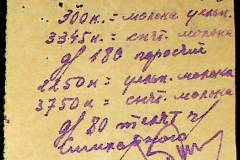 900к. = молока цельн.
3345к. = снят. молока
для 180 поросят
2250к = цельн. молока
3750к = снят. молока
для 80 телят